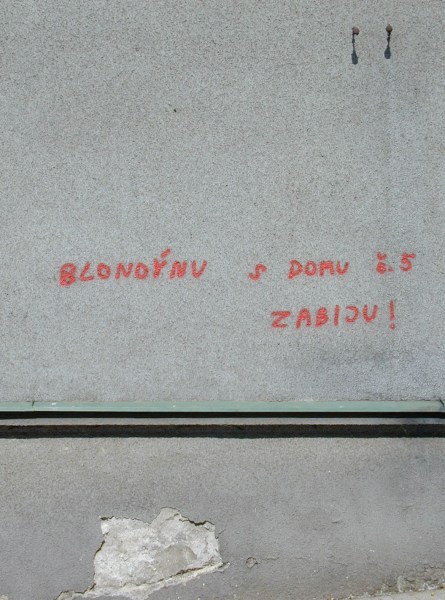 BLONDÝNU S DOMU č.5
ZABIJU!